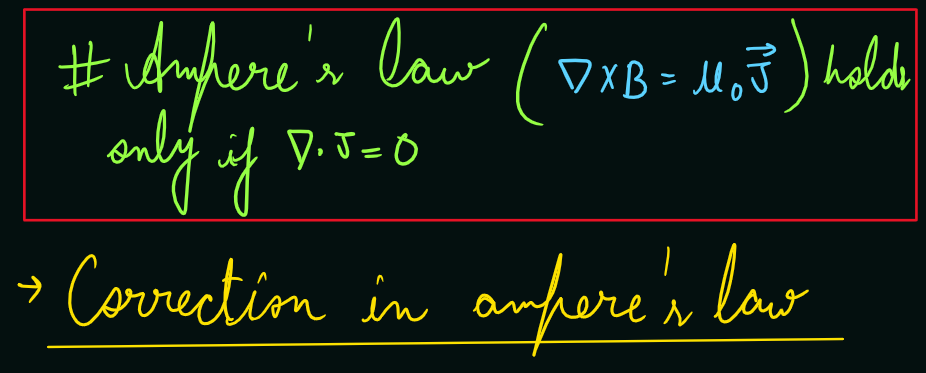 # Ampere's law (∇×B = μ₀J⃗) holds
only if ∇·J = 0
→ Correction in ampere's law